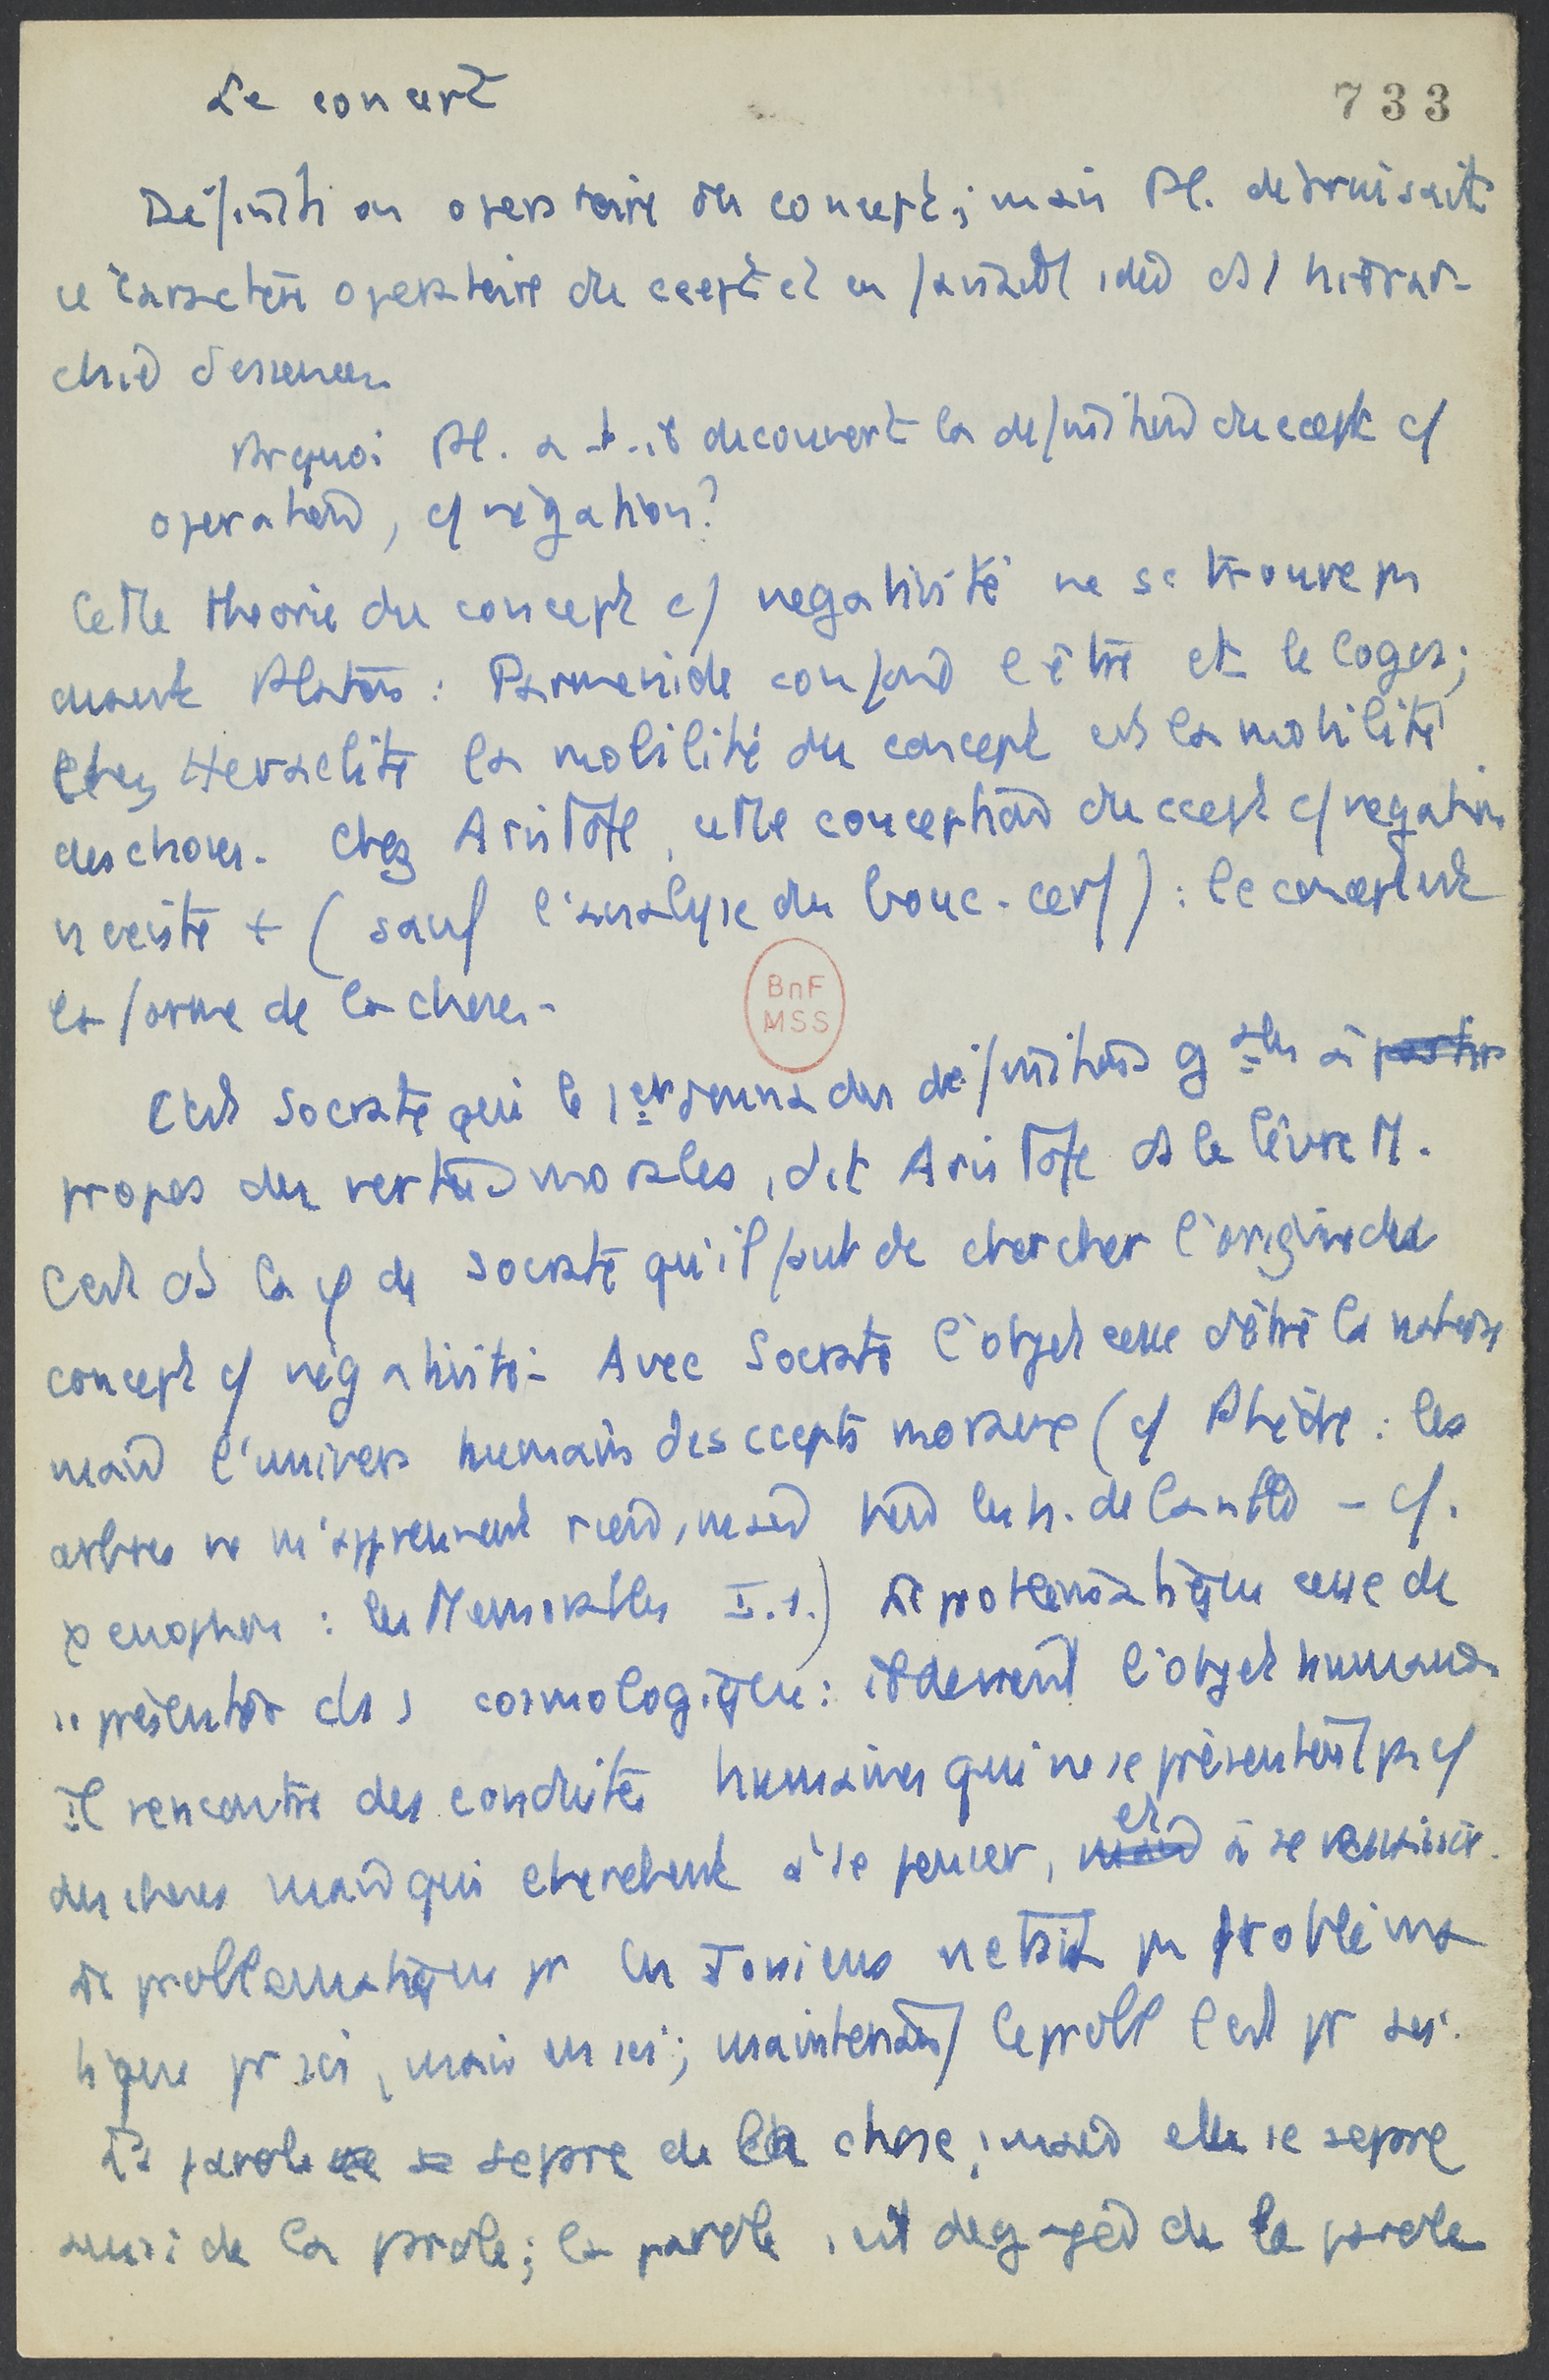 Le concept
733
Définition operatoire du concept ; mais Pl. detruisait
ce caractère operatoire du ccept et en faisait idée ds 1 hierar-
chie d'essences.
Prquoi Pl. a-t-il decouvert la definition du ccept cf
operation, cf négation ?
Cette theorie du concept cf negativité ne se trouve pas
avant Platon : Parmenide confond l'être et le logos ;
chez Heraclite la mobilité du concept est la mobilité
des choses. Chez Aristote, cette conception du ccept cf negation
n'existe + (sauf l'analyse du bouc-cerf) : le concept est
la forme de la chose.
BnF
MSS
C'est Socrate qui le 1er donna des définitions gales à partir
propos des vertus morales, dit Aristote ds le livre M.
C'est ds la φ de Socrate qu'il faut chercher l'origine du
concept cf négativité. Avec Socrate l'objet cesse d'être la nature
mais l'univers humain des ccepts moraux (cf Phèdre : les
arbres ne m'apprennent rien, mais bien les h. de la ville - cf.
Xenophon : les Memorables I.1.) Le problématique cesse de
se présenter ds 1 cosmologique : il devient l'objet humain.
Il rencontre des conduites humaines qui ne se présentent pas cf
des choses mais qui cherchent à se penser, mais et à se
Le problematique pr les Ioniens n'etait pas problema
tique pr soi, mais en soi ; maintenant le probl l'est pr soi.
La parole se separe de la chose, mais elle se separe
aussi de la parole ; la parole, est degagée de la parole